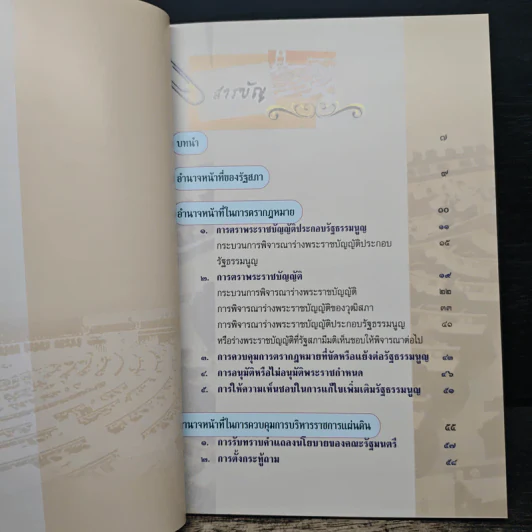 สารบัญ
บทนำ ๗
อำนาจหน้าที่ของรัฐสภา ๙
อำนาจหน้าที่ในการตรากฎหมาย ๑๐
๑. การตราพระราชบัญญัติประกอบรัฐธรรมนูญ ๑๑
กระบวนการพิจารณาร่างพระราชบัญญัติประกอบ ๑๕
รัฐธรรมนูญ
๒. การตราพระราชบัญญัติ ๑๙
กระบวนการพิจารณาร่างพระราชบัญญัติ ๒๒
การพิจารณาร่างพระราชบัญญัติของวุฒิสภา ๓๓
การพิจารณาร่างพระราชบัญญัติประกอบรัฐธรรมนูญ ๔๐
หรือร่างพระราชบัญญัติที่รัฐสภามีมติเห็นชอบให้พิจารณาต่อไป
๓. การควบคุมการตรากฎหมายที่ขัดหรือแย้งต่อรัฐธรรมนูญ ๔๒
๔. การอนุมัติหรือไม่อนุมัติพระราชกำหนด ๔๖
๕. การให้ความเห็นชอบในการแก้ไขเพิ่มเติมรัฐธรรมนูญ ๕๑
อำนาจหน้าที่ในการควบคุมการบริหารราชการแผ่นดิน ๕๕
๑. การรับทราบคำแถลงนโยบายของคณะรัฐมนตรี ๕๗
๒. การตั้งกระทู้ถาม ๕๘